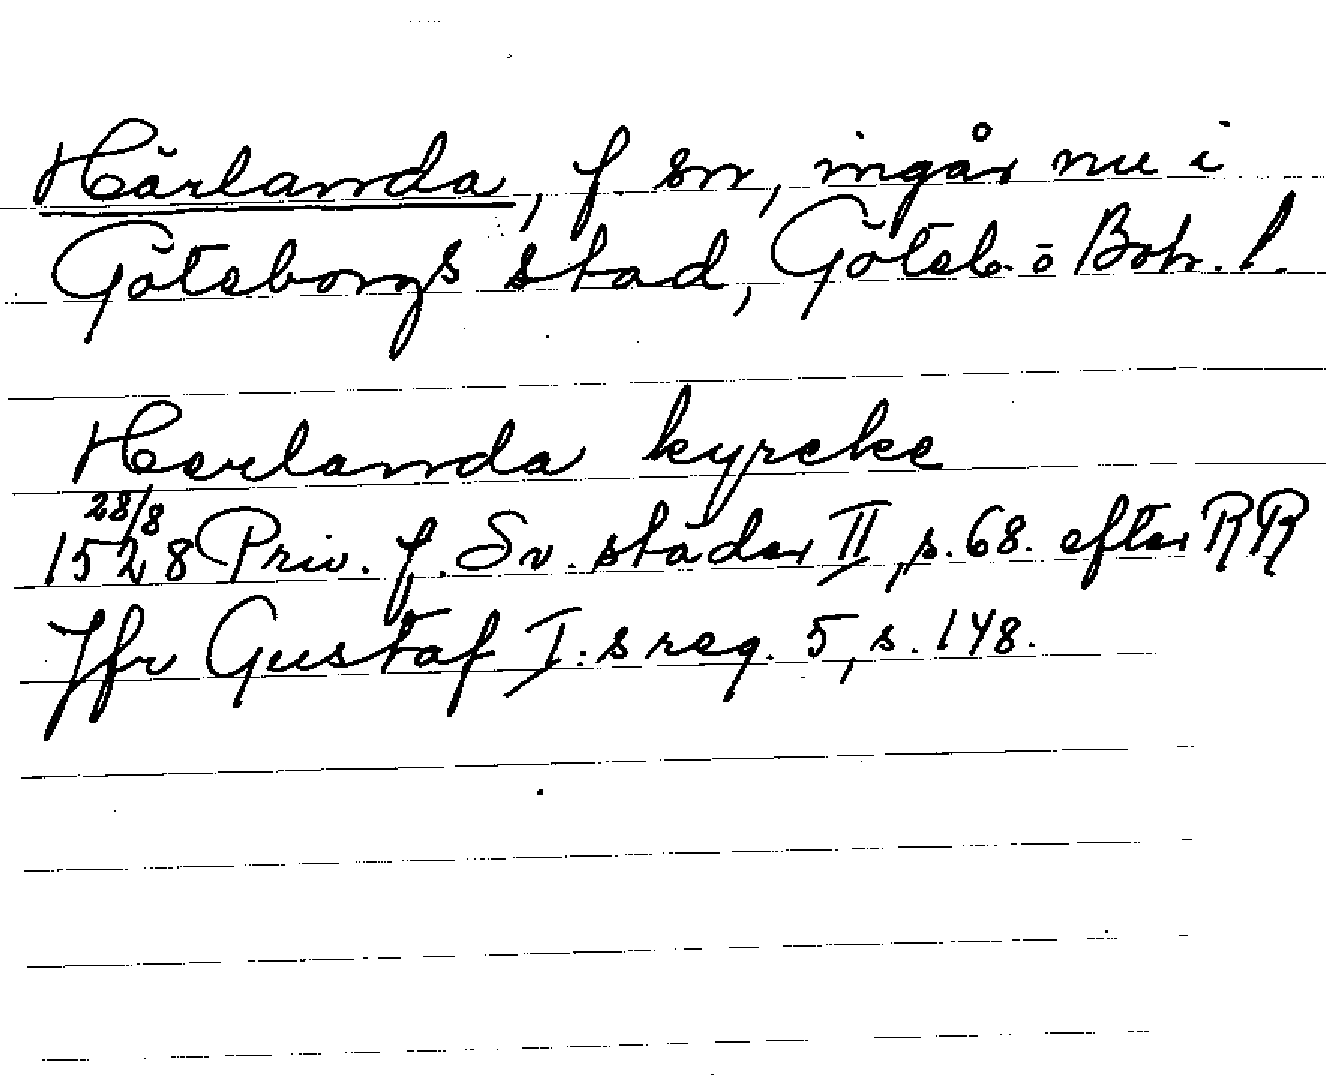 Härlanda, f. sn, ingår nu i
Göteborgs stad, Göteb. o Boh. l.
Herlanda kyrcke
28/8
1528 Priv. f. Sv. städer II, s. 68. efter RR
Jfr Gustaf I:s reg. 5, s. 148.